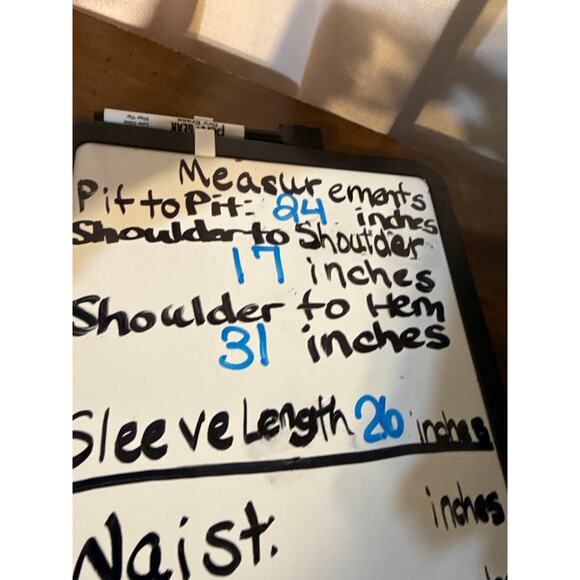 Measurements
Pit to Pit: 24 inches
Shoulder to Shoulder
17 inches
Shoulder to Hem
31 inches
Sleeve Length 26 inches
inches
Waist: